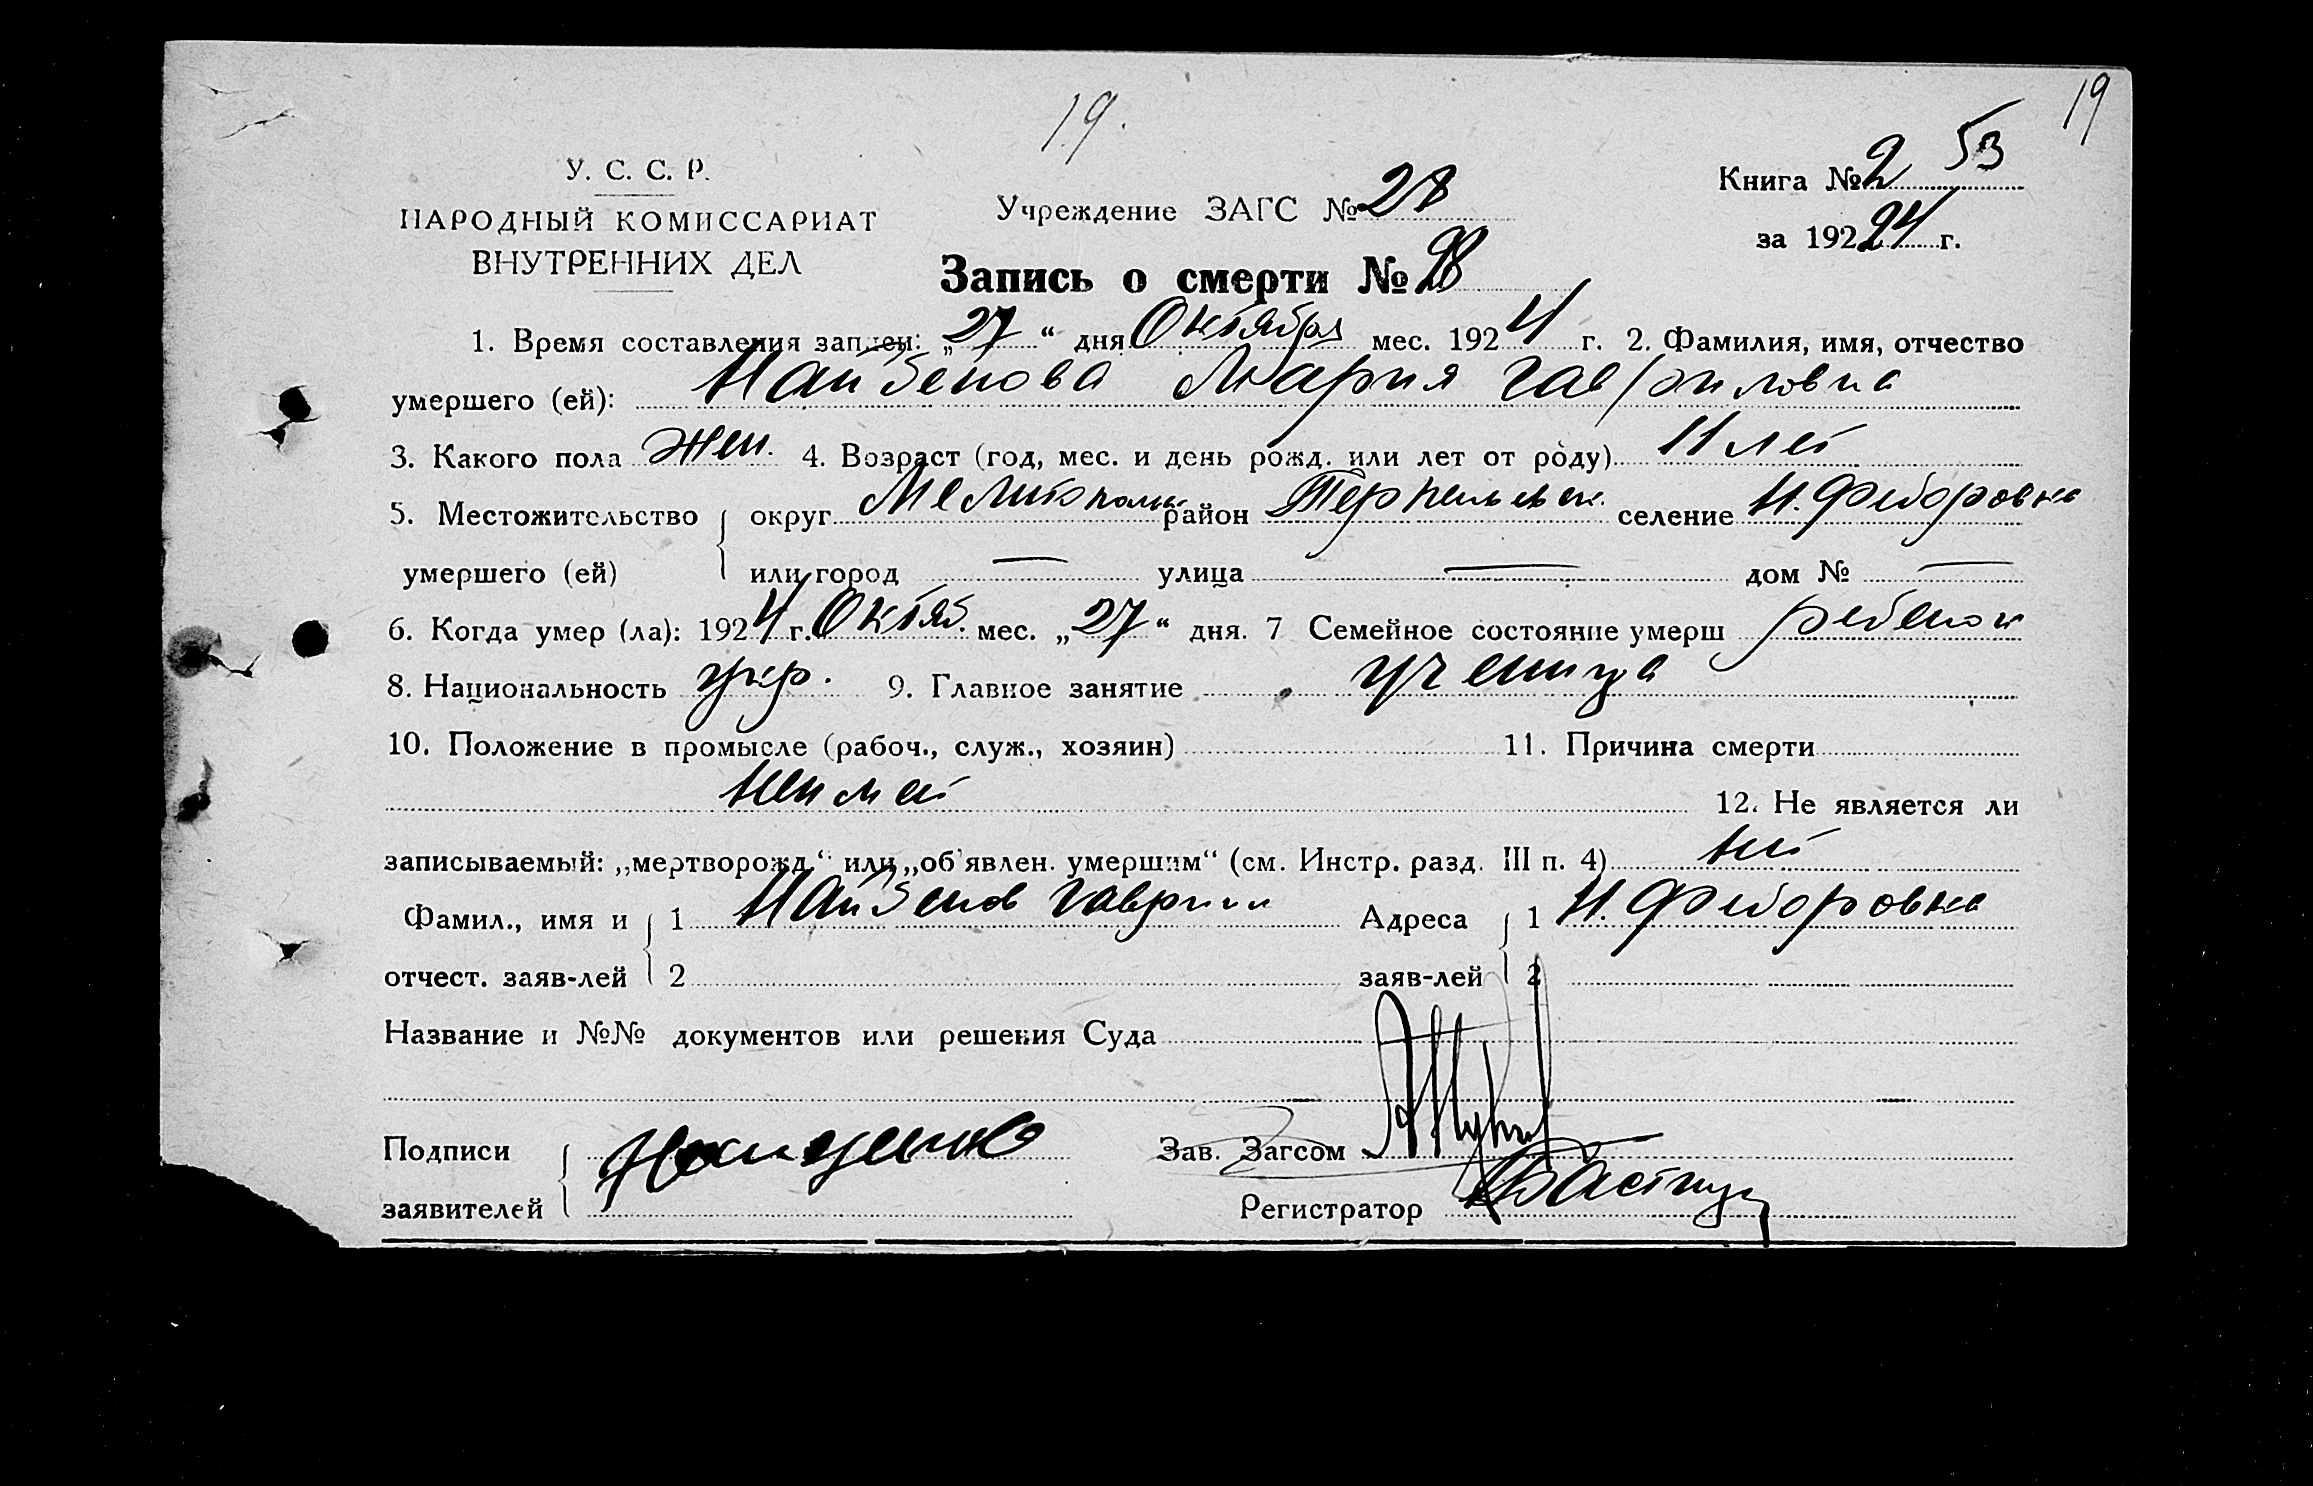 19
19.
53
У. С. С. Р.
НАРОДНЫЙ КОМИССАРИАТ
ВНУТРЕННИХ ДЕЛ
Учреждение ЗАГС № 28
Книга № 2
за 192 24 г.
Запись о смерти № 28
1. Время составления записи: „27“ дня Октября мес. 1924 г. 2. Фамилия, имя, отчество
умершего (ей): Найденова Мария Гавриловна
3. Какого пола жен. 4. Возраст (год, мес. и день рожд. или лет от роду) 11 лет
5. Местожительство округ Мелитополь район Терпеньевск. селение Н. Федоровка
умершего (ей) или город — улица — дом № —
6. Когда умер (ла): 1924 г. Октяб. мес. „27“ дня. 7 Семейное состояние умерш ребенок
8. Национальность укр. 9. Главное занятие ученица
10. Положение в промысле (рабоч., служ., хозяин) 11. Причина смерти
12. Не является ли
записываемый: „мертворожд.“ или „об'явлен. умершим“ (см. Инстр. разд. III п. 4) нет
Фамил., имя и 1 Найденов Гавриил Адреса 1 Н. Федоровка
отчест. заяв-лей 2 заяв-лей 2
Название и №№ документов или решения Суда
Подписи Зав. Загсом
заявителей Регистратор